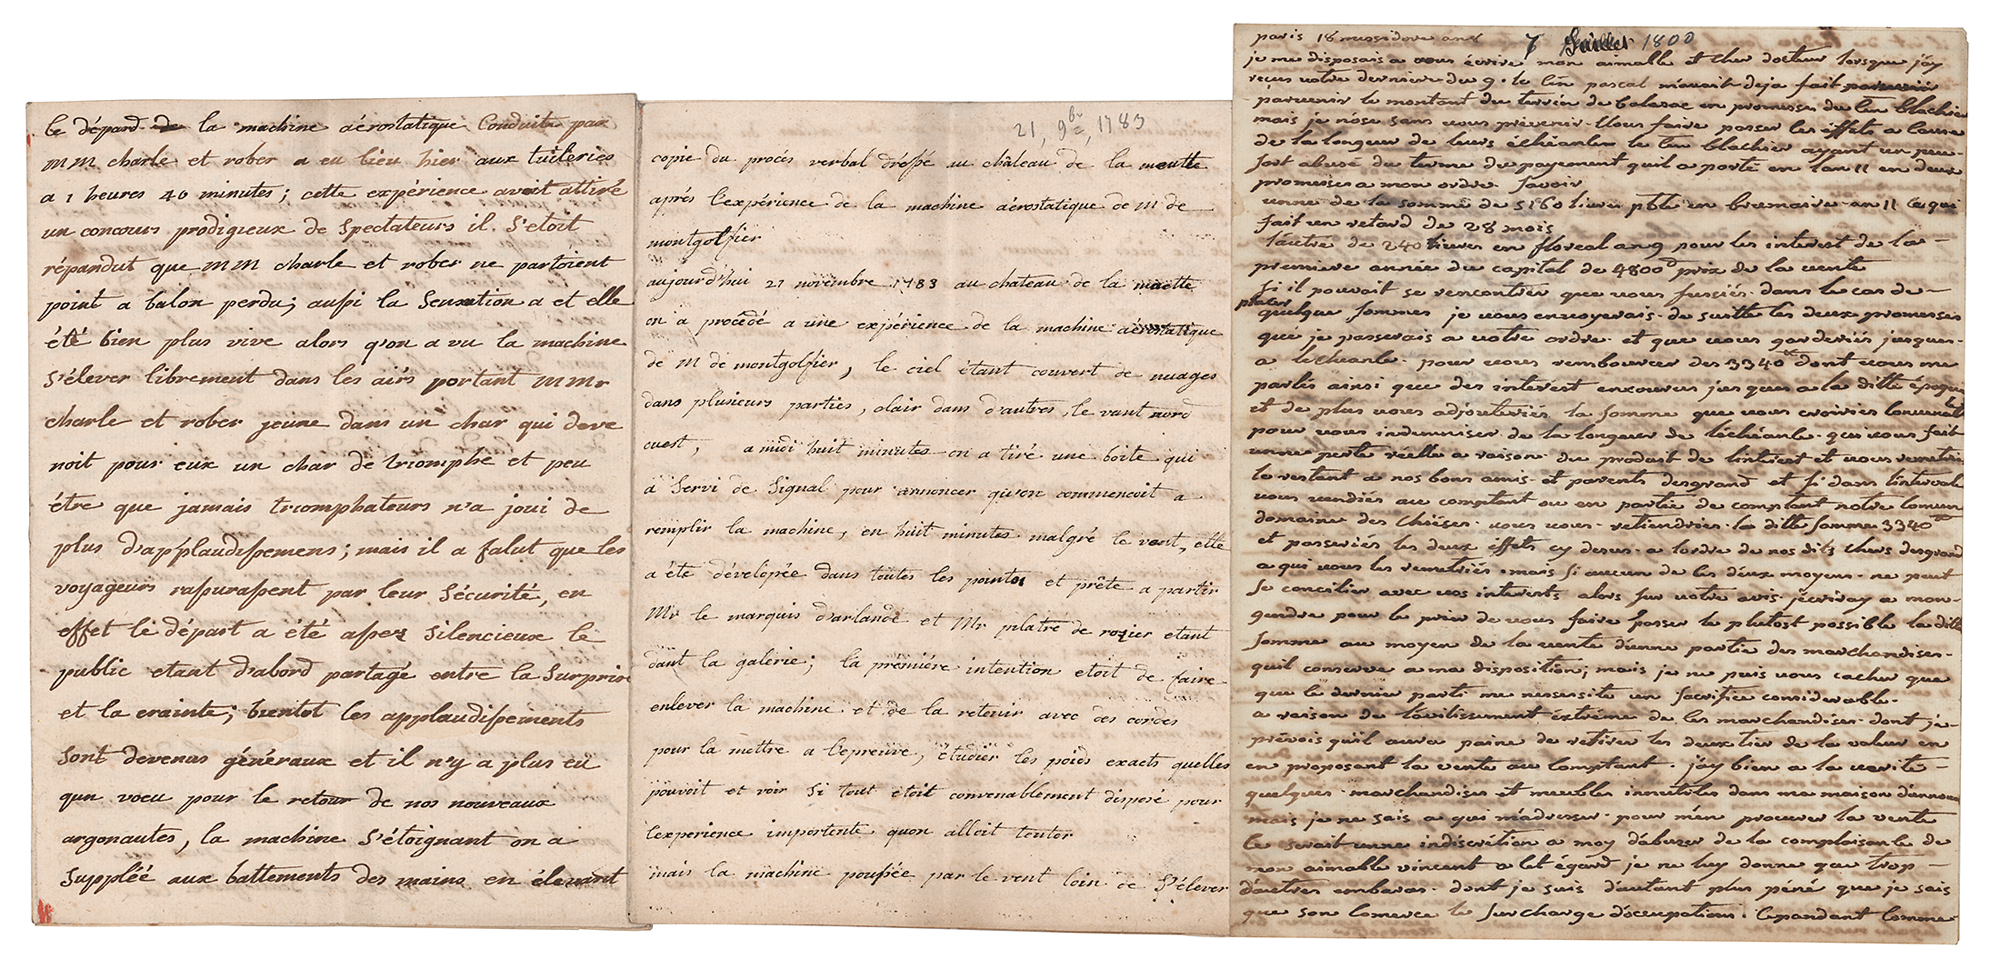 le départ de la machine aérostatique Conduite par
MM charle et rober a eu lieu hier aux tuileries
a 1 heures 40 minutes; cette expérience avoit attiré
un concours prodigieux de Spectateurs il S'étoit
répandut que MM charle et rober ne partoient
point a balon perdu; aussi la Sensation a et elle
été bien plus vive alors q'on a vu la machine
S'élever librement dans les airs portant MMr
charle et rober jeune dans un char qui deve
noit pour eux un char de triomphe et peu
étre que jamais triomphateurs n'a joui de
plus d'applaudissemens; mais il a falut que les
voyageurs rassurassent par leur Sécurité, en
effet le départ a été assez Silencieux le
public etant d'abord partagé entre la Surprise
et la crainte; bientot les applaudissements
Sont devenus généraux et il n'y a plus eu
qun voeu pour le retour de nos nouveaux
argonautes, la machine S'éloignant on a
Supplée aux battements des mains en élevant
21, 9bre, 1783
copie du procés verbal dréssé au château de la muette
aprés l'expérience de la machine aérostatique de M de
montgolfier
aujourd'hui 21 novembre 1783 au chateau de la muette
on a procédé a une expérience de la machine aérostatique
de M de montgolfier, le ciel étant couvert de nuages
dans plusieurs parties, clair dans d'autres, le vant nord
ouest, a midi huit minutes on a tiré une boite qui
a Servi de Signal pour annoncer qu'on commencoit a
remplir la machine, en huit minutes malgré le vent, elle
a été dévelopée dans toutes les points et prête a partir
Mr le marquis d'arlande et Mr pilatre de rozier etant
dant la galerie; la prémiére intention etoit de faire
enlever la machine et de la retenir avec des cordes
pour la mettre a l'epreuve, étudier les poids exacts quelles
pouvoit et voir Si tout étoit convenablement disposé pour
l'experience importente quon alloit tenter
mais la machine poussée par le vent loin de S'élever
paris 18 messidore an 8 7 Juillet 1800
je me disposais a vous écrire mon aimable et cher docteur lorsque j'ay
reçus votre derniere du 9. le Cen pascal m'avait deja fait
parvenir le montant du terrein de balazac en promesses du Cen blachier
mais je n'ose sans vous prévenir Vous faire passer les éffets a cause
de la longeur de leurs échéances le Cen blachier ayant un peu
fort abusé du terme du payement quil a porté en l'an 11 en deux
promesses a mon ordre. Savoir
unne de la somme de 5160 livres pble en brumaire an 11 ce qui
fait un retard de 28 mois
l'autre de 240 livres en floreal an 9 pour les interest de la
premiere année du capital de 4800 prix de la vente
Si il pouvoit se rencontrer que vous fussiés dans le cas de
placer quelque Sommes je vous envoyerais de suitte les deux promesses
que je passerais a votre ordre et que vous garderiés jusques
a lechéance pour vous rembourcer des 3340 dont vous me
parlés ainsi que des interest encourus jusques a la ditte époque
et de plus vous adjouteriés la Somme que vous croiriés
pour vous indemniser de la longeur de l'échéance qui vous fait
unne perte réelle a raison du produit de l'intérest et vous remettriés
le restant a nos bons amis et parents desgrand et Si dans l'interval
vous vendiés au comptant ou en partie de comptant notre comun
domaine des Chiéses vous vous retiendries la ditte Somme 3340
et passeriés les deux éffets cy desus a l'ordre de nos dits chers desgrand
a qui vous les remettriés. mais Si aucun de les deux moyens ne peut
Se concilier avec vos interests alors Sur votre avis j'écriray a mon
gendre pour le prier de vous faire passer le plutost possible la ditte
Somme au moyen de la vente d'unne partie des marchandises
quil conserve a ma disposition; mais je ne puis vous cacher que
que ce dernier parti me nessesite un Sacrifice considerable
a raison de l'avilissement extréme de les marchandises dont je
prévois quil aura paine de retirer les deux tier de la valeur en
en proposant la vente au Comptant. j'ay bien a la verité
quelques marchandises et meubles innutiles dans ma maison
mais je ne sais a qui m'adresser pour m'en procurer la vente
ce serait unne indiscrétion a moy d'abuser de la complaisance de
mon aimable vincent a cet égard je ne luy donne que trop
d'autres embaras. dont je suis d'autant plus péné que je sais
que son comerce le Surcharge d'occupations. Cepandant Comme